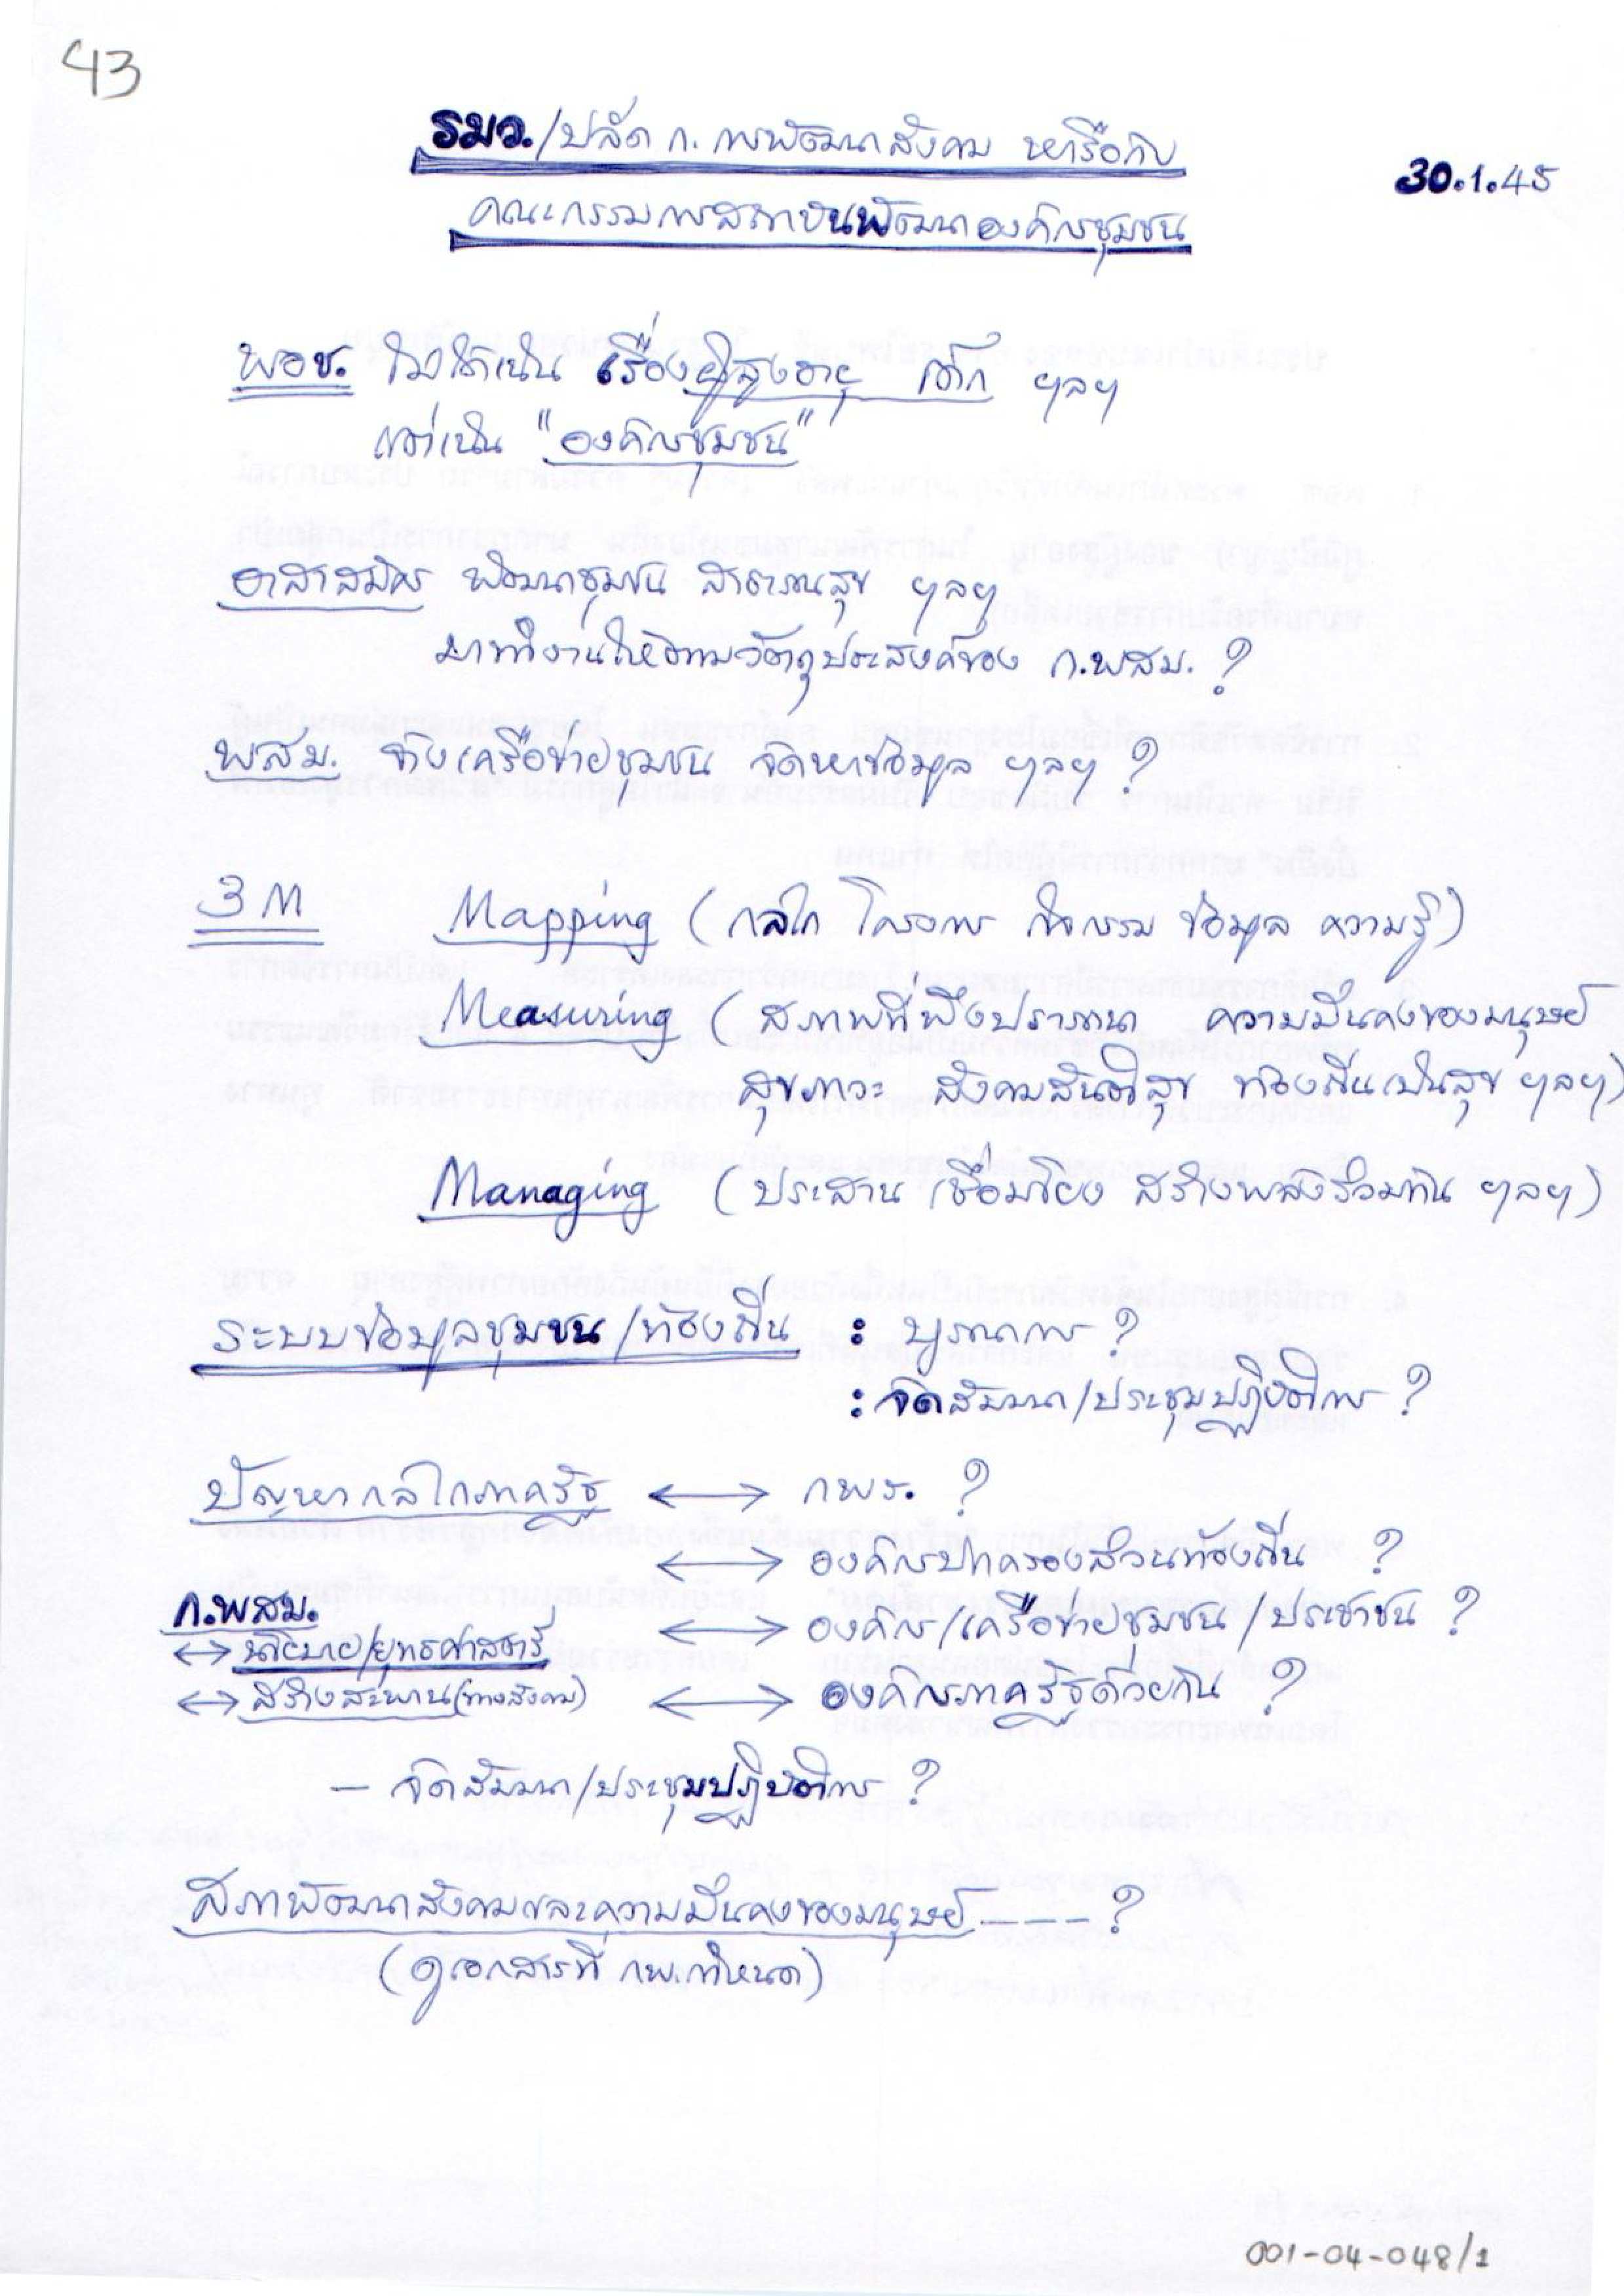 43
รมว./ปลัด ก. การพัฒนาสังคม หารือกับ
30.1.45
คณะกรรมการสถาบันพัฒนาองค์กรชุมชน
พอช. ไม่ได้เน้น เรื่องผู้สูงอายุ เด็ก ฯลฯ
แต่เน้น "องค์กรชุมชน"
อาสาสมัคร พัฒนาชุมชน สาธารณสุข ฯลฯ
มาทำงานให้ตามวัตถุประสงค์ของ ก.พสม. ?
พสม. จ้างเครือข่ายชุมชน จัดหาข้อมูล ฯลฯ ?
3 M Mapping (กลไก โครงการ กิจกรรม ข้อมูล ความรู้)
Measuring (สภาพที่พึงปรารถนา ความมั่นคงของมนุษย์
สุขภาวะ สังคมสันติสุข ท้องถิ่นเป็นสุข ฯลฯ)
Managing (ประสาน เชื่อมโยง สร้างพลังร่วมกัน ฯลฯ)
ระบบข้อมูลชุมชน/ท้องถิ่น : บูรณาการ ?
: จัดสัมมนา/ประชุมปฏิบัติการ ?
ปัญหากลไกภาครัฐ ↔ กพร. ?
↔ องค์กรปกครองส่วนท้องถิ่น ?
ก.พสม. ↔ องค์กร/เครือข่ายชุมชน/ประชาชน ?
↔ นโยบาย/ยุทธศาสตร์
↔ สร้างสะพาน(ทางสังคม) ↔ องค์กรภาครัฐด้วยกัน ?
– จัดสัมมนา/ประชุมปฏิบัติการ ?
สภาพัฒนาสังคมและความมั่นคงของมนุษย์ ---- ?
(ดูเอกสารที่ กพ.กำหนด)
001-04-048/1